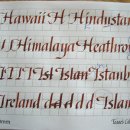 Hawaii H Hindustan
Himalaya Heathrow
I I I I Isl Islan Istanb
Ireland d d d d Islam